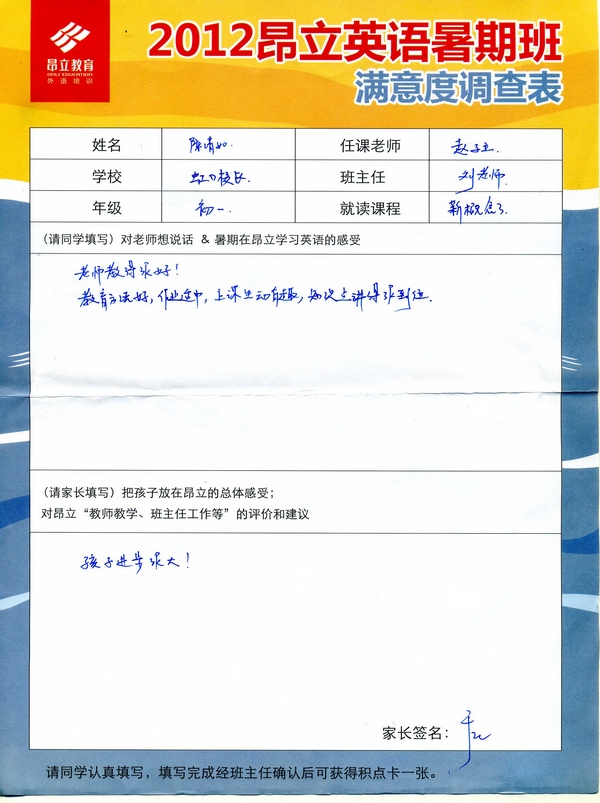 昂立教育
ONLY EDUCATION
外语培训
2012昂立英语暑期班
满意度调查表
姓名 陈清如 任课老师 赵子立
学校 虹口校长 班主任 刘老师
年级 初一 就读课程 新概念3
(请同学填写)对老师想说话 & 暑期在昂立学习英语的感受
老师教得很好!
教育方法好,作业适中,上课生动有趣,知识点讲得很到位.
(请家长填写)把孩子放在昂立的总体感受;
对昂立“教师教学、班主任工作等”的评价和建议
孩子进步很大!
家长签名:
请同学认真填写,填写完成经班主任确认后可获得积点卡一张。